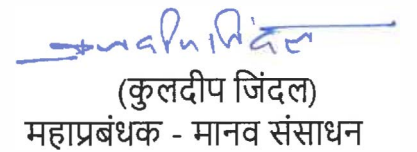 (कुलदीप जिंदल)
महाप्रबंधक - मानव संसाधन